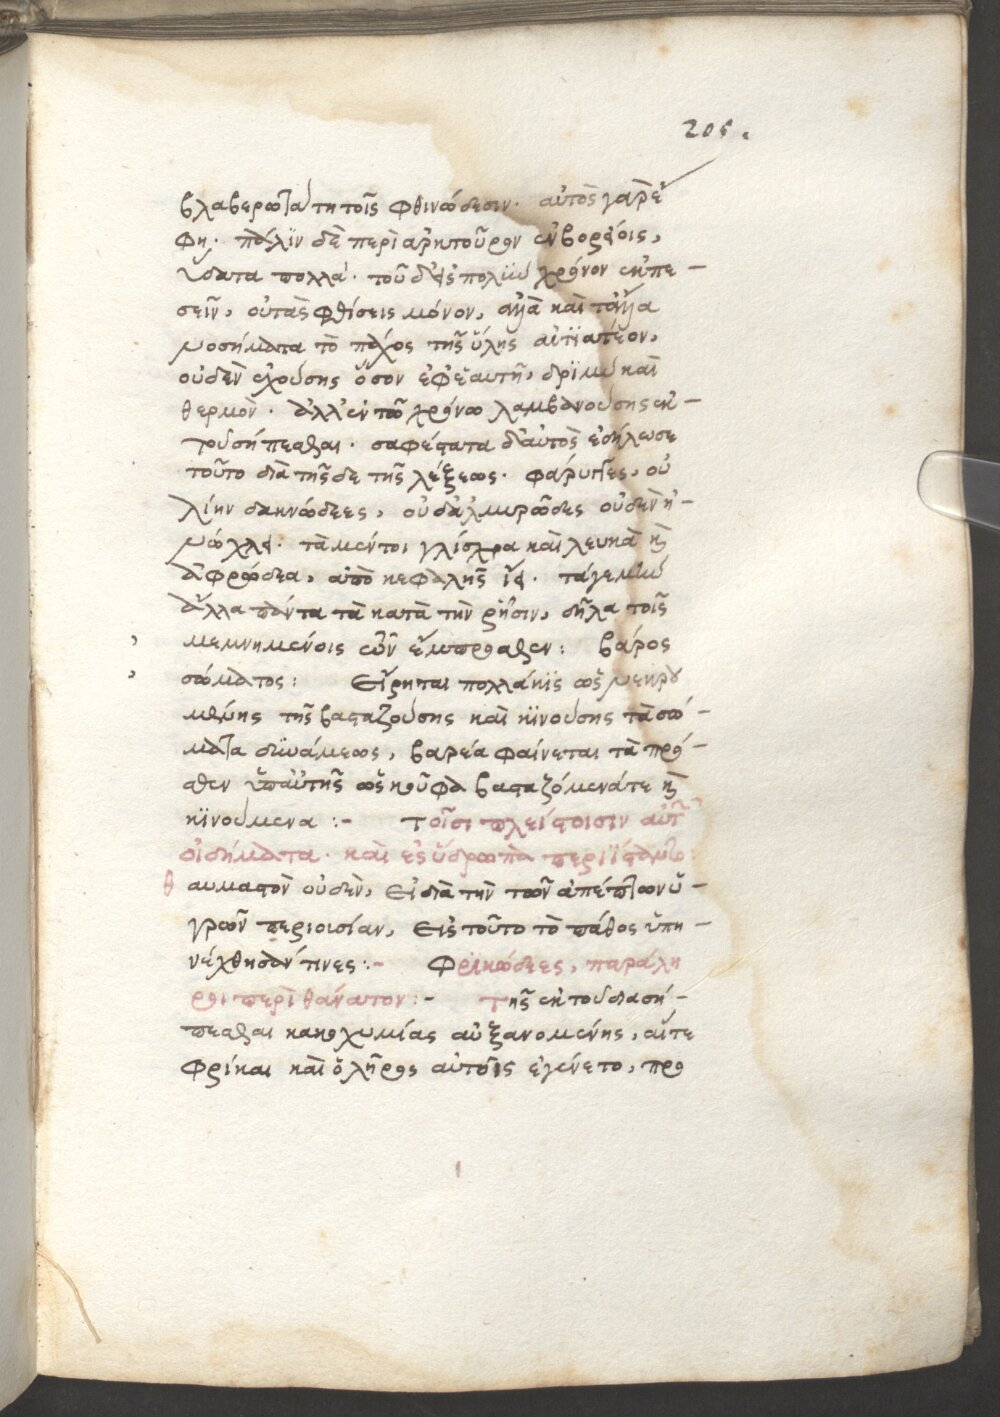 205.
βλαβερώτατη τοῖς φθινώδεσιν· αὐτὸς γὰρ ἔ
φη· πάλιν δὲ περὶ ἀρκτοῦρον ἐν βορείοις,
ὕδατα πολλά· τοῦ δ' ἐς πολὺν χρόνον ἐκπε –
σεῖν, οὐ τὰς φθίσεις μόνον, ἀλλὰ καὶ τἄλλα
νοσήματα τὸ πάχος τῆς ὕλης αἰτιατέον,
οὐδὲν ἐχούσης ὅσον ἐφ' ἑαυτῇ, δριμὺ καὶ
θερμόν· ἀλλ' ἐν τῷ χρόνῳ λαμβανούσης ἐκ –
τοῦ σήπεσθαι· σαφέστατα δ' αὐτὸς ἐδήλωσε
τοῦτο διὰ τῆσδε τῆς λέξεως· φάρυγγες, οὐ
λίην δακνώδεες, οὐδ' ἁλμυρῶδες οὐδὲν ἠ –
νώχλει· τὰ μέντοι γλίσχρα καὶ λευκὰ καὶ
ἀφρώδεα, ἀπὸ κεφαλῆς ᾔει· τά γε μὴν
ἄλλα πάντα τὰ κατὰ τὴν ῥῆσιν, δῆλα τοῖς
μεμνημένοις ὧν ἔμπροσθεν: βάρος
σώματος: Εἴρηται πολλάκις ὡς νεκρου
μένης τῆς βασταζούσης καὶ κινούσης τὰ σώ –
ματα δυνάμεως, βαρέα φαίνεται τὰ πρό –
σθεν ὑπ' αὐτῆς ὡς κοῦφα βασταζόμενά τε καὶ
κινούμενα :– Τοῖσι πλείστοισιν αὐτῶν
οἰδήματα· καὶ ἐς ὕδρωπα περιίσταντο:
θαυμαστὸν οὐδὲν, εἰ διὰ τὴν τῶν ἀπέπτων ὑ –
γρῶν περιουσίαν, εἰς τοῦτο τὸ πάθος ὑπη –
νέχθησάν τινες :– Φρικώδεες, παράλη
ροι περὶ θάνατον :– Τῆς ἐκ τοῦ διασή –
πεσθαι κακοχυμίας αὐξανομένης, αἵτε
φρίκαι καὶ ὁ λῆρος αὐτοῖς ἐγένετο, προ